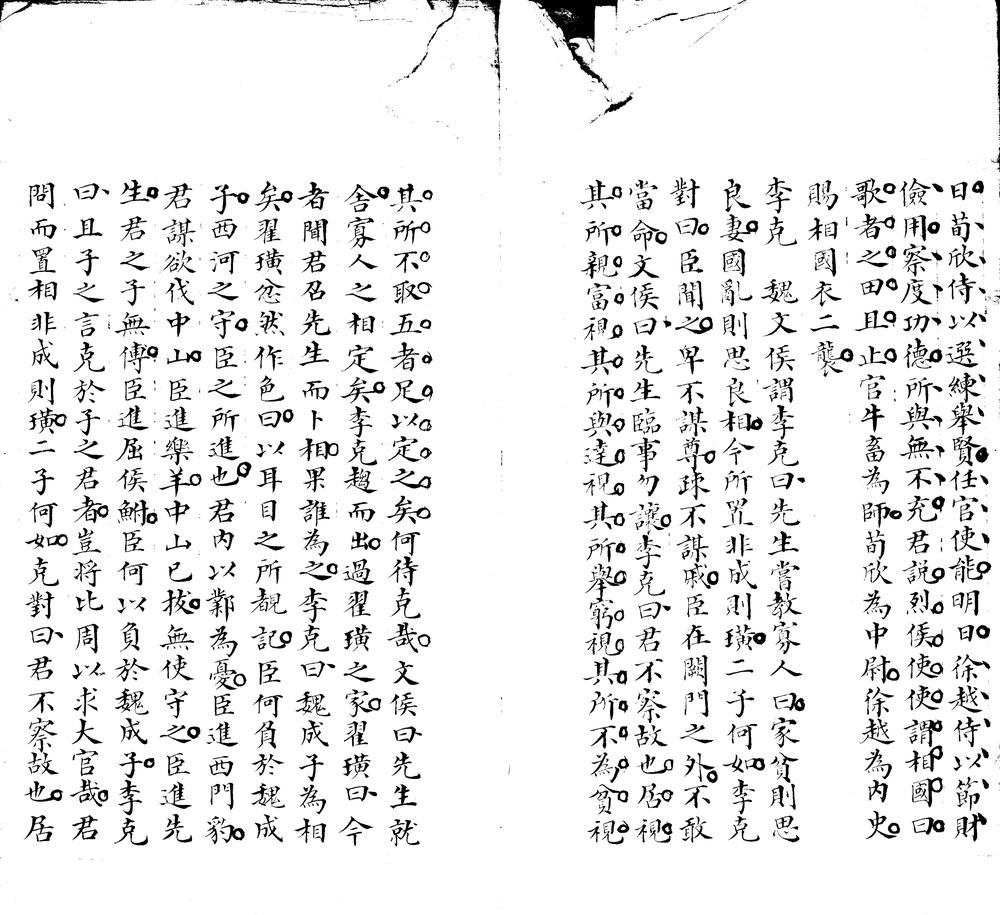 日荀欣侍以選練舉賢任官使能明日徐越侍以節財
儉用察度功德所與無不充君説烈侯使使謂相國曰
歌者之田且止官牛畜為師荀欣為中尉徐越為內史
賜相國衣二襲
李克　魏文侯謂李克曰先生嘗教寡人曰家貧則思
良妻國亂則思良相今所置非成則璜二子何如李克
對曰臣聞之卑不謀尊疎不謀戚臣在闕門之外不敢
當命文侯曰先生臨事勿讓李克曰君不察故也居視
其所親富視其所與達視其所舉窮視其所不為貧視
其所不取五者足以定之矣何待克哉文侯曰先生就
舍寡人之相定矣李克趨而出過翟璜之家翟璜曰今
者聞君召先生而卜相果誰為之李克曰魏成子為相
矣翟璜忿然作色曰以耳目之所覩記臣何負於魏成
子西河之守臣之所進也君內以鄴為憂臣進西門豹
君謀欲伐中山臣進樂羊中山已拔無使守之臣進先
生君之子無傅臣進屈侯鮒臣何以負於魏成子李克
曰且子之言克於子之君者豈将比周以求大官哉君
問而置相非成則璜二子何如克對曰君不察故也居